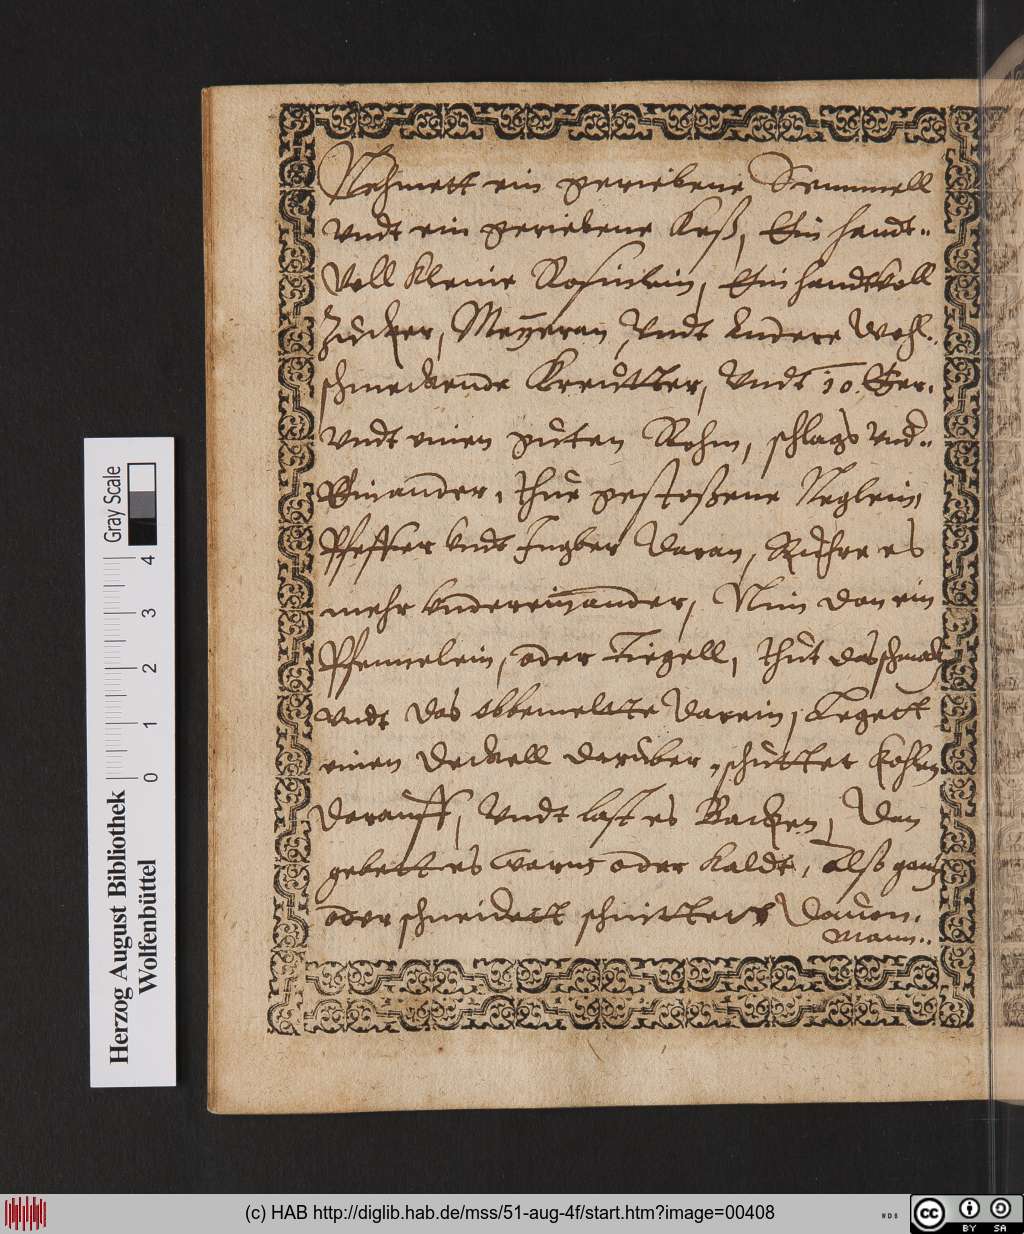 Nehmett ein geriebene Semmell
vndt ein geriebene Keß, Ein handt„
Voll kleine Rosinlein, Ein handtvoll
Zuͤcker, Meÿeran, Vndt Andere Wohl„
schmeckende Kreutter, Vndt 10. Eer.
vndt einen guten Rohm, schlags vnd„
Einander, thue gestoßene Neglein,
Pfeffer vndt Ingber daran, Ruhre es
mehr vndereinander, Nim dan ein
Pfennelein, oder Tiegell, thut das schmaltz
vndt das obbemelte darein, Legett
einen deckell daruber, schutter kohlen
darauff, Vndt last es Backen, dan
gebett es warm oder kaldt, Alß gantz
oder schneidett schnitten dauon.
Mann„
Gray Scale
4
3
2
1
0
Herzog August Bibliothek
Wolfenbüttel
(c) HAB http://diglib.hab.de/mss/51-aug-4f/start.htm?image=00408
WDB
cc
BY SA